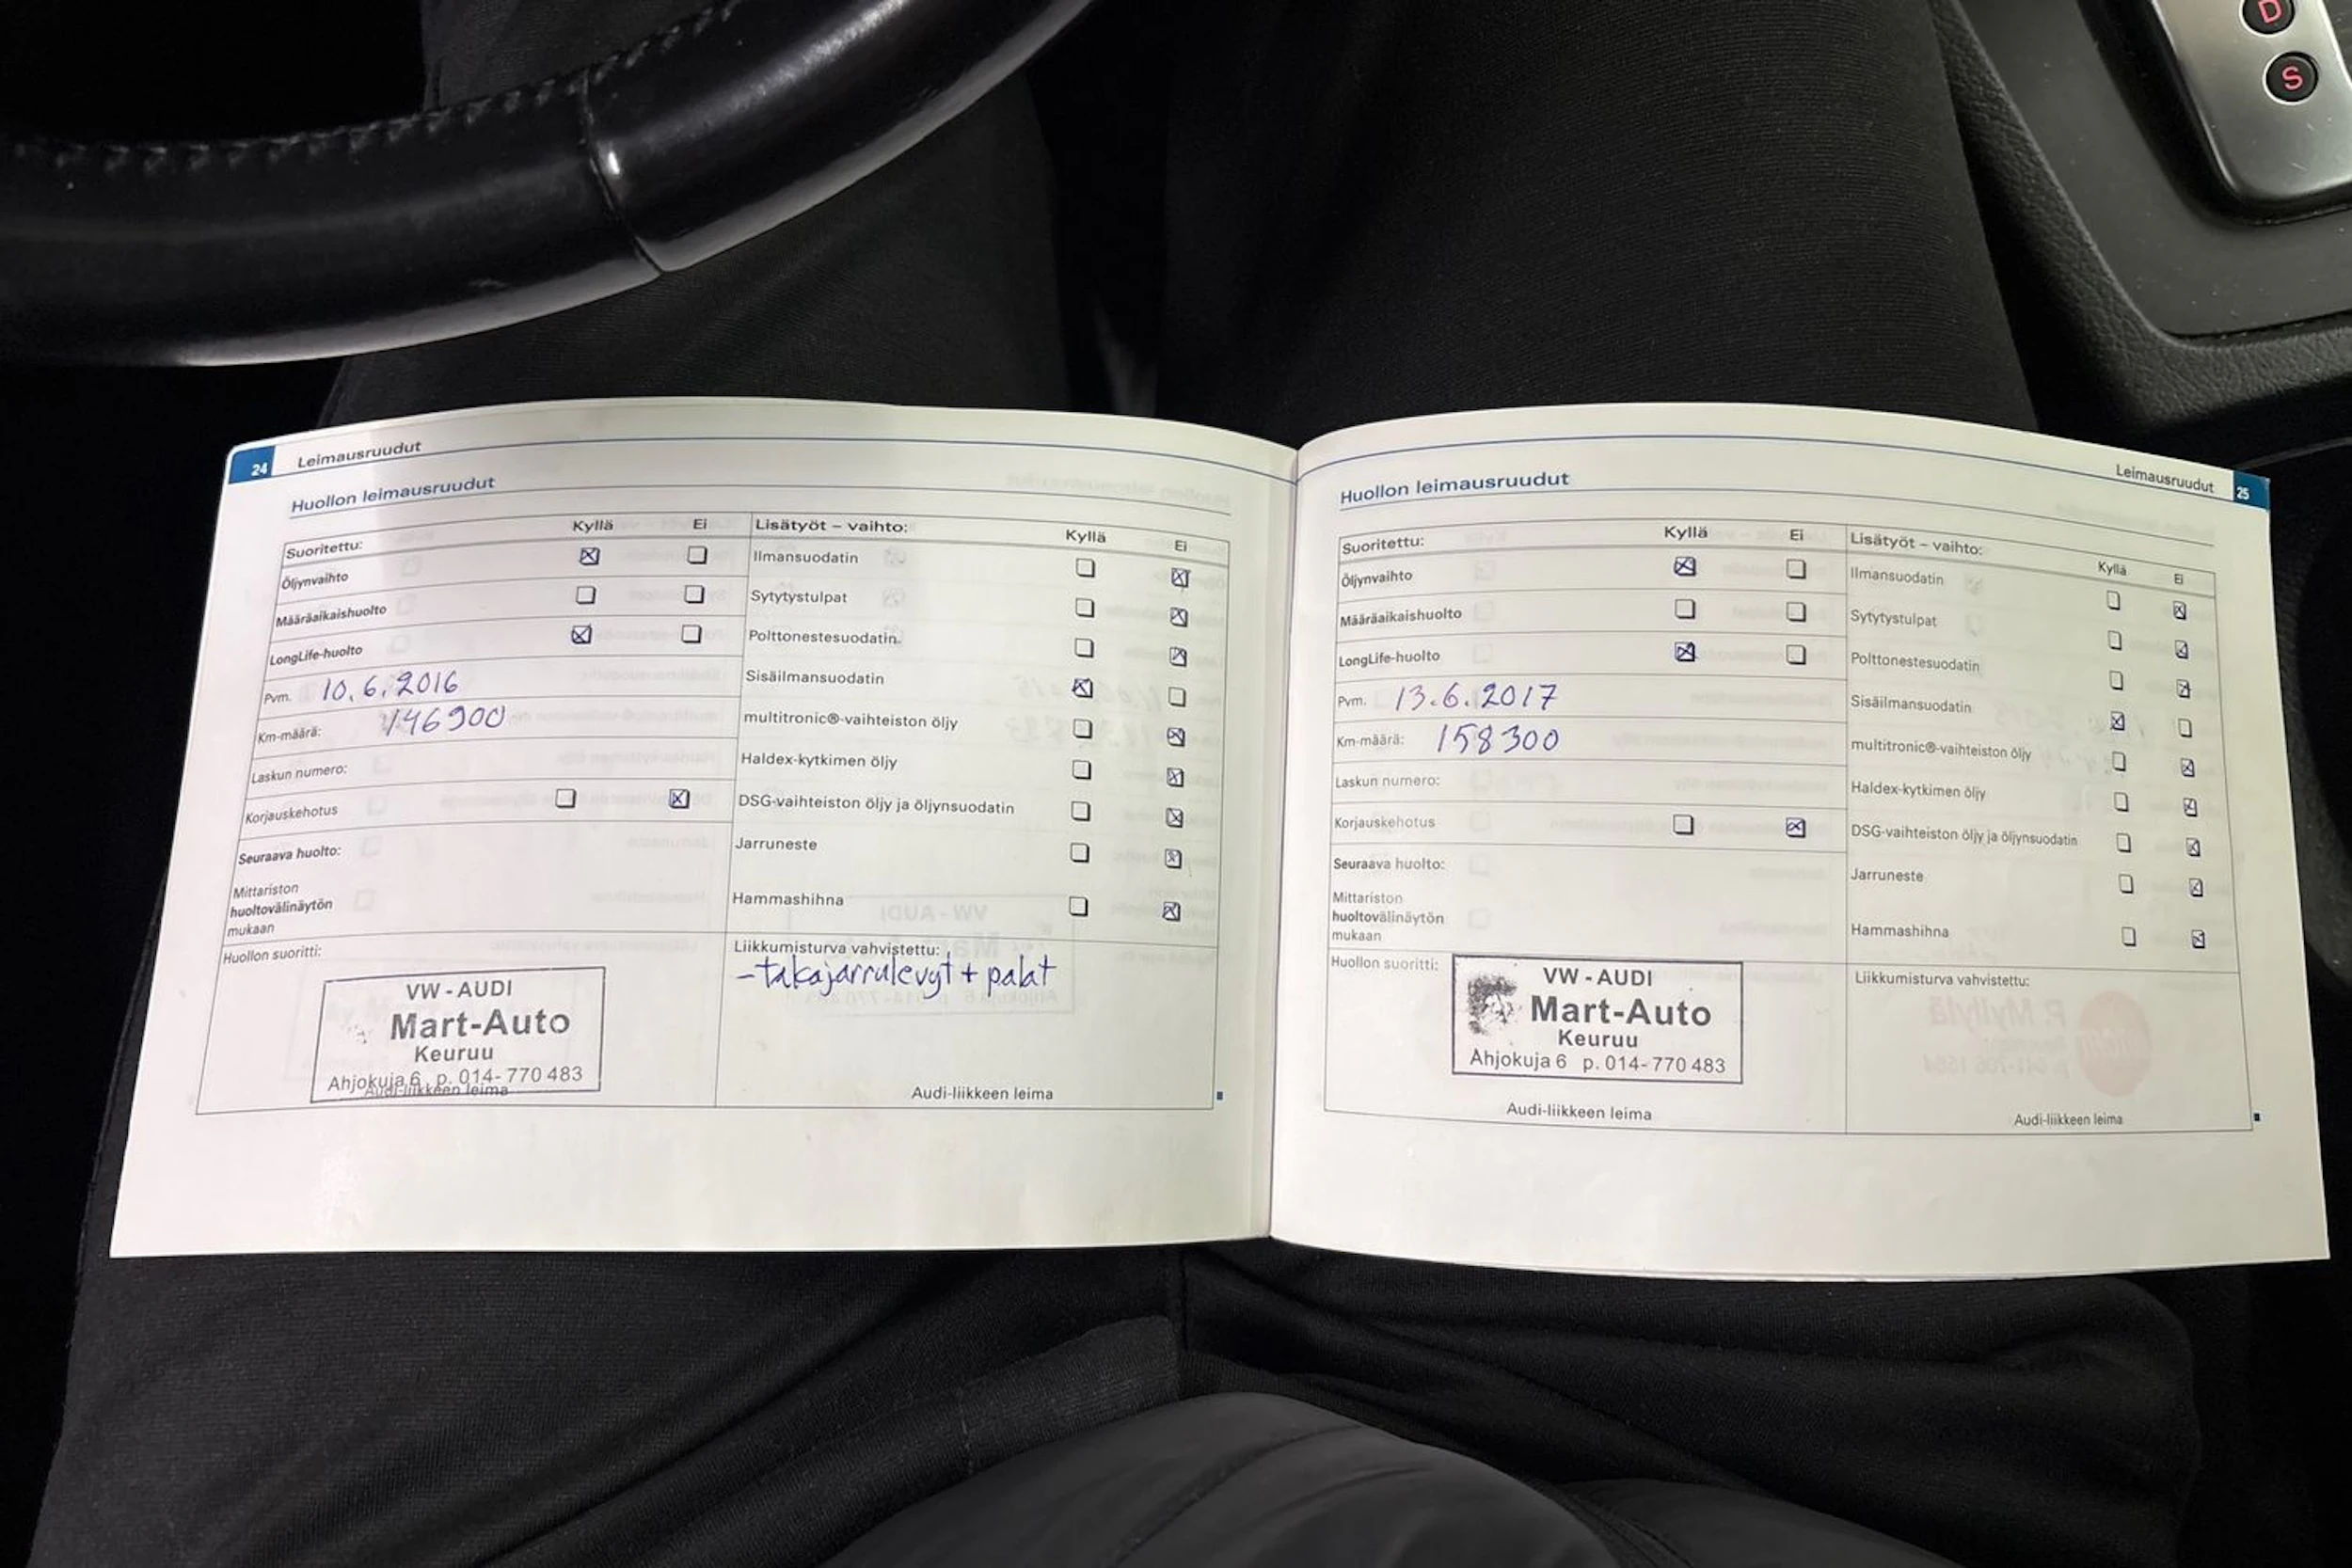 D
S
24 Leimausruudut
Huollon leimausruudut
Suoritettu: Kyllä Ei
Öljynvaihto
Määräaikaishuolto
LongLife-huolto
Pvm. 10.6.2016
Km-määrä: 146900
Laskun numero:
Korjauskehotus
Seuraava huolto:
Mittariston
huoltovälinäytön
mukaan
Huollon suoritti:
VW-AUDI
Mart-Auto
Keuruu
Ahjokuja 6 p. 014-770 483
Audi-liikkeen leima
Lisätyöt – vaihto: Kyllä Ei
Ilmansuodatin
Sytytystulpat
Polttonestesuodatin
Sisäilmansuodatin
multitronic®-vaihteiston öljy
Haldex-kytkimen öljy
DSG-vaihteiston öljy ja öljynsuodatin
Jarruneste
Hammashihna
Liikkumisturva vahvistettu:
-takajarrulevyt + palat
Audi-liikkeen leima
Leimausruudut 25
Huollon leimausruudut
Suoritettu: Kyllä Ei
Öljynvaihto
Määräaikaishuolto
LongLife-huolto
Pvm. 13.6.2017
Km-määrä: 158300
Laskun numero:
Korjauskehotus
Seuraava huolto:
Mittariston
huoltovälinäytön
mukaan
Huollon suoritti:
VW-AUDI
Mart-Auto
Keuruu
Ahjokuja 6 p. 014-770 483
Audi-liikkeen leima
Lisätyöt – vaihto: Kyllä Ei
Ilmansuodatin
Sytytystulpat
Polttonestesuodatin
Sisäilmansuodatin
multitronic®-vaihteiston öljy
Haldex-kytkimen öljy
DSG-vaihteiston öljy ja öljynsuodatin
Jarruneste
Hammashihna
Liikkumisturva vahvistettu:
Audi-liikkeen leima